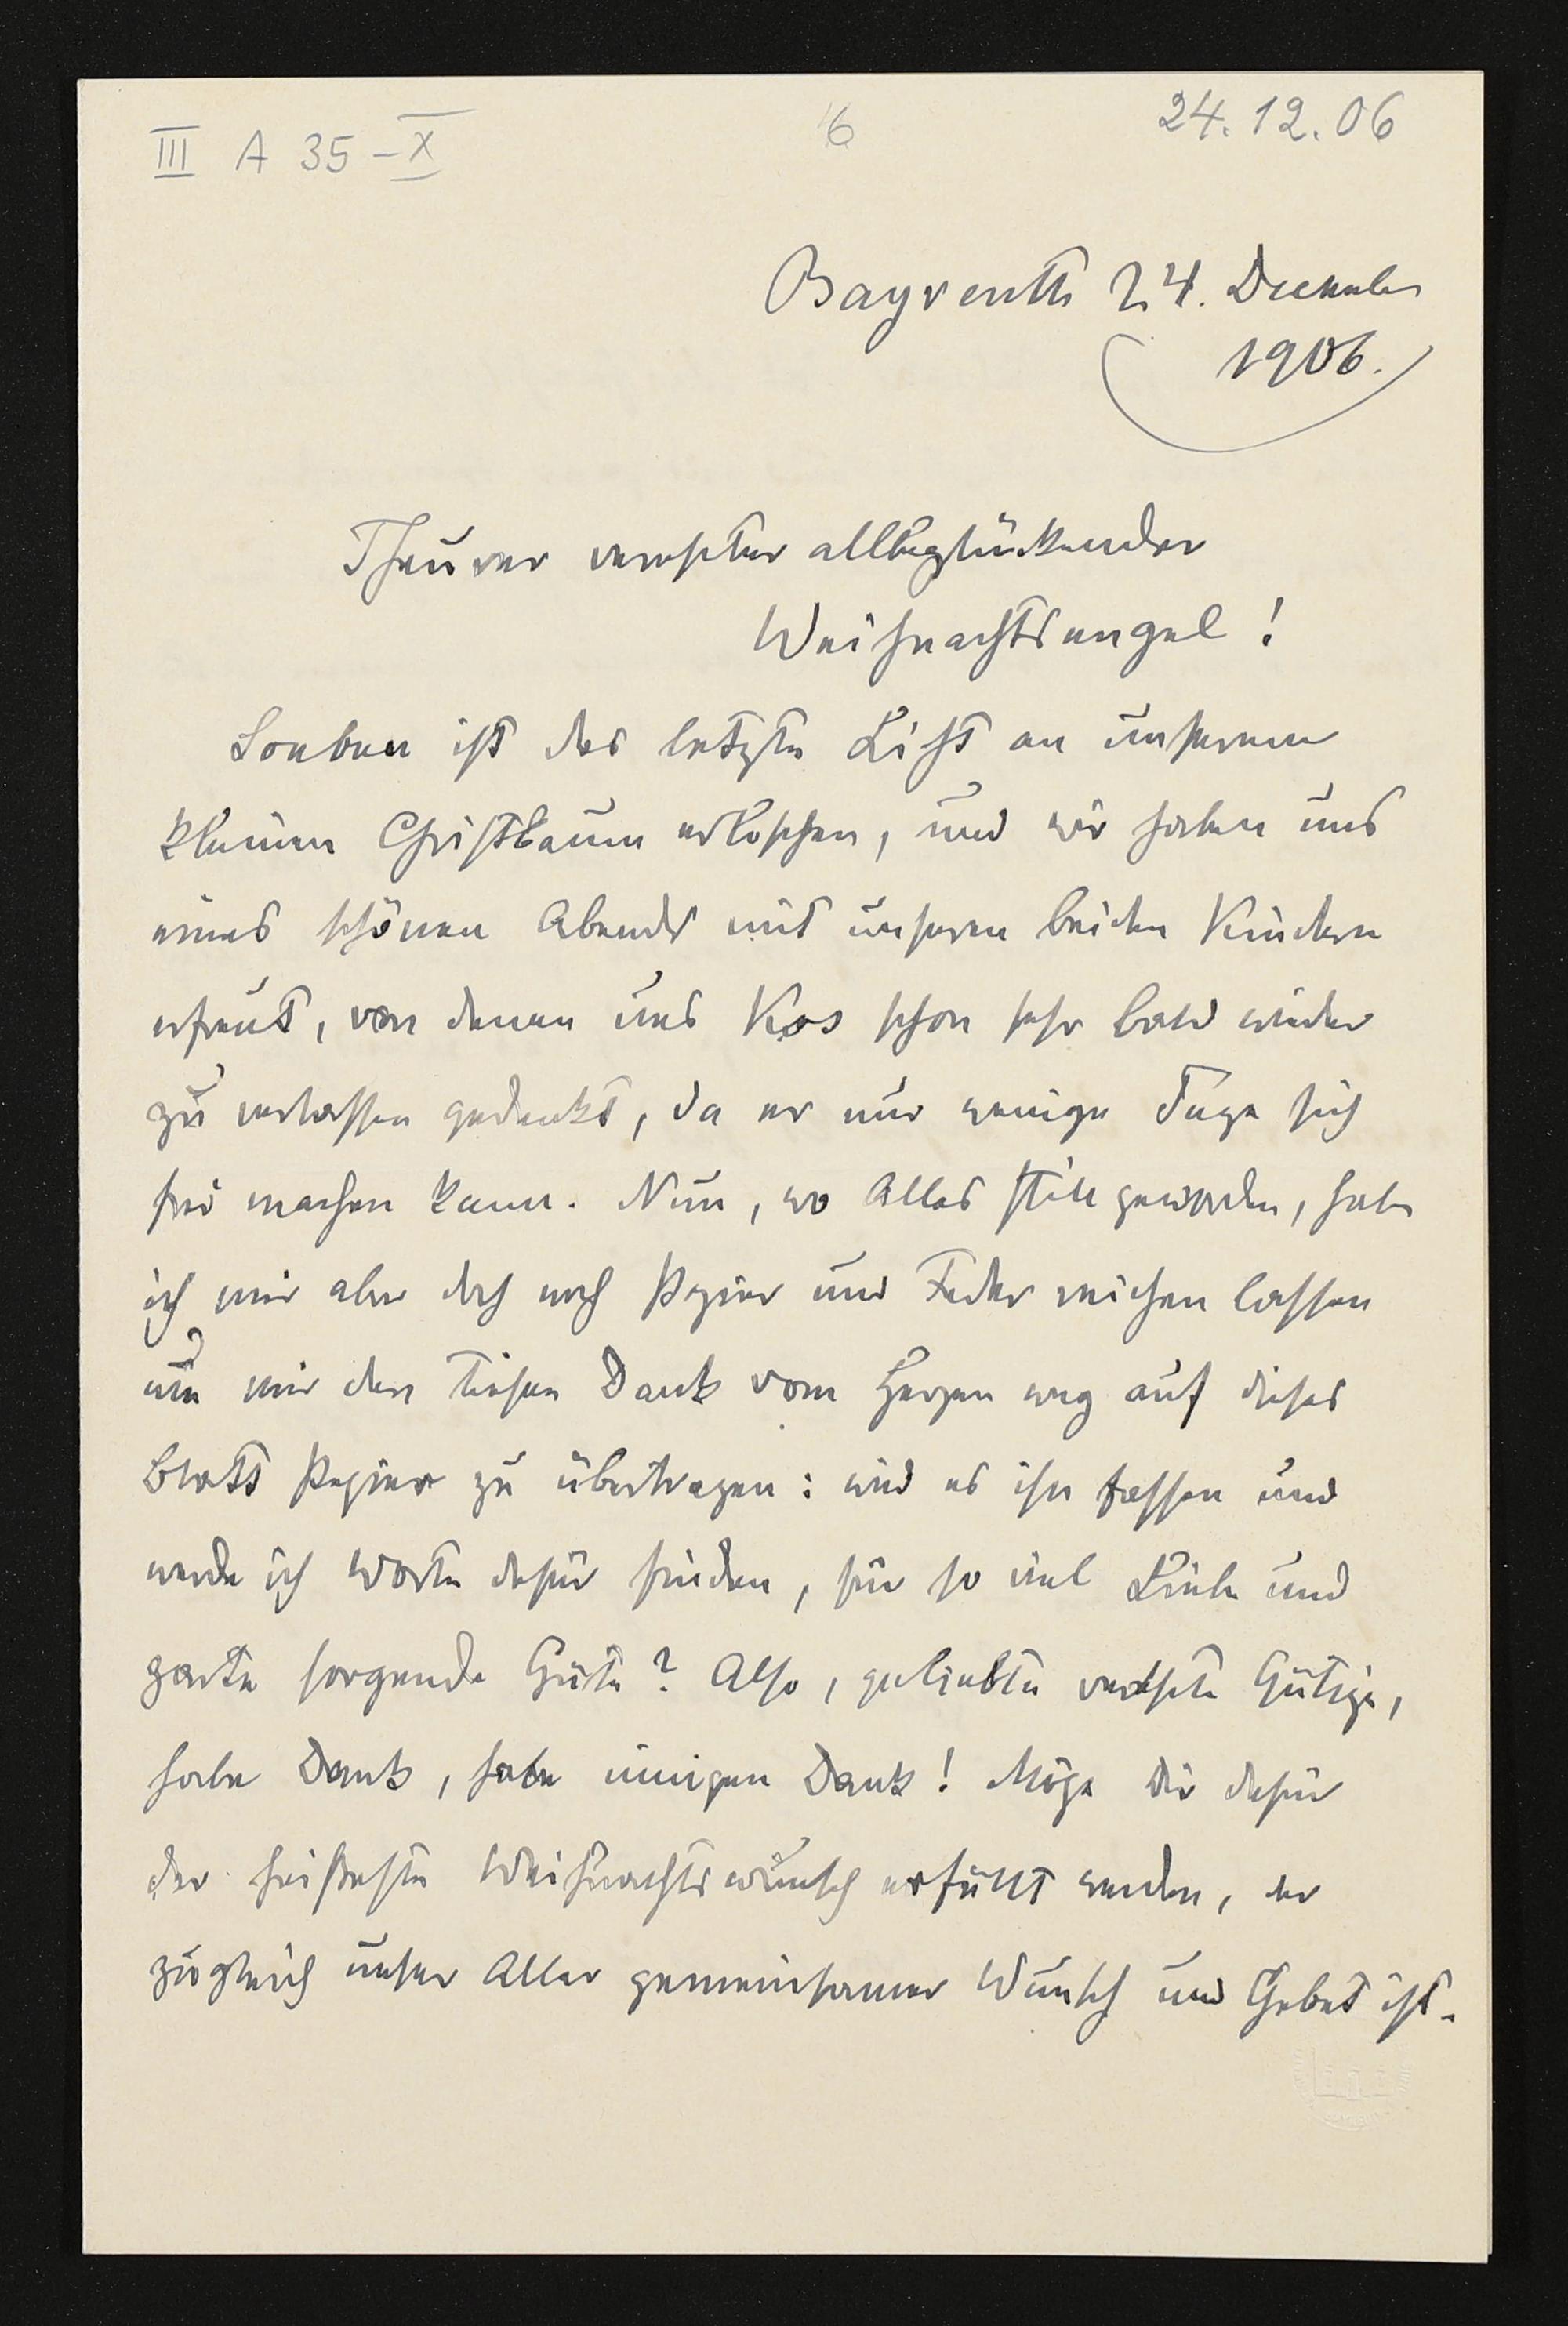 III A 35 – X
6
24.12.06
Bayreuth 24. December
1906.
Theurer verehrter allbeglückender
Weihnachtsengel!
Soeben ist das letzte Licht an unserem
kleinen Christbaum erloschen, und wir haben uns
eines schönen Abends mit unseren beiden Kindern
erfreut, von denen uns Kos schon sehr bald wieder
zu verlassen gedenkt, da er nur wenige Tage sich
frei machen kann. Nun, wo Alles still geworden, habe
ich mir aber doch noch Papier und Feder reichen lassen
um mir den tiefen Dank vom Herzen weg auf dieses
Blatt Papier zu übertragen: wird es ihn fassen und
werde ich Worte dafür finden, für so viel Liebe und
zarte sorgende Güte? Also, geliebte verehrte Gütige,
habe Dank, habe innigen Dank! Möge Dir dafür
der heißeste Weihnachtswunsch erfüllt werden, der
zugleich unser Aller gemeinsamer Wunsch und Gebet ist.